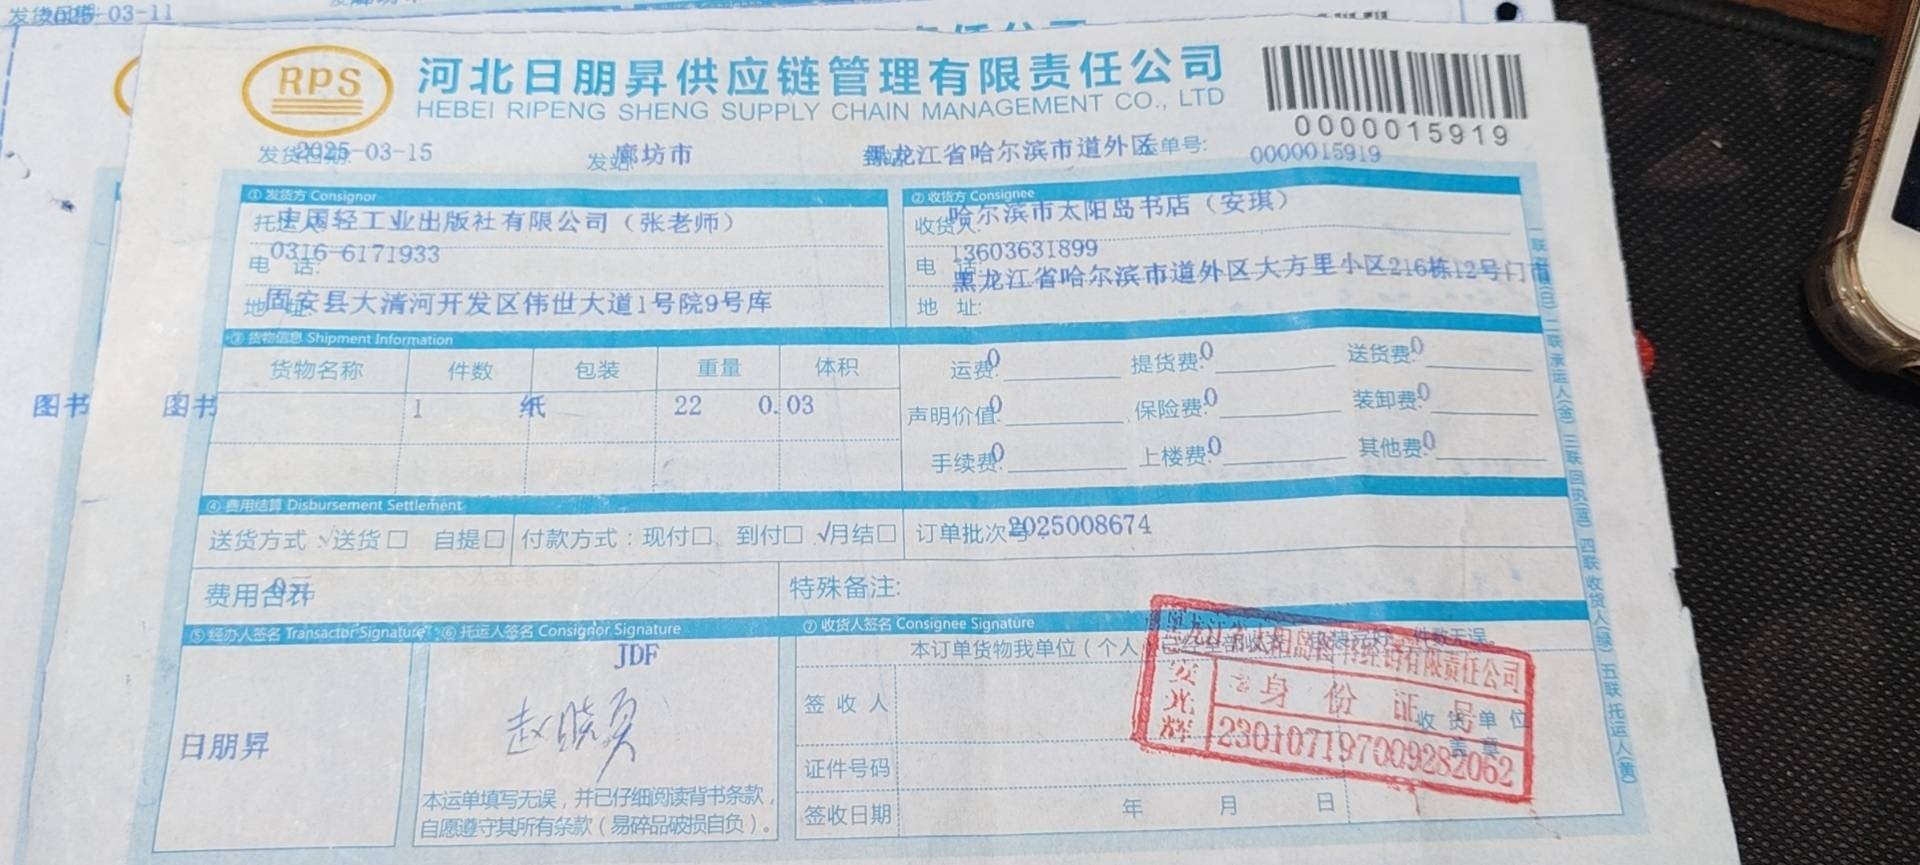 发货日期: 2025-03-11
RPS
河北日朋昇供应链管理有限责任公司
HEBEI RIPENG SHENG SUPPLY CHAIN MANAGEMENT CO., LTD
0000015919
发货日期: 2025-03-15 发站: 廊坊市 黑龙江省哈尔滨市道外区 运单号: 0000015919
① 发货方 Consignor
托运人: 中国轻工业出版社有限公司（张老师）
电 话: 0316-6171933
地 址: 固安县大清河开发区伟世大道1号院9号库
② 收货方 Consignee
收货人: 哈尔滨市太阳岛书店（安琪）
电 话: 13603631899
地 址: 黑龙江省哈尔滨市道外区大方里小区216栋12号门市
③ 货物信息 Shipment Information
货物名称 件数 包装 重量 体积
图书 图书 1 纸 22 0.03
运费: 0 提货费: 0 送货费: 0
声明价值: 0 保险费: 0 装卸费: 0
手续费: 0 上楼费: 0 其他费: 0
④ 费用结算 Disbursement Settlement
送货方式: √送货□ 自提□ 付款方式: 现付□ 到付□ √月结□ 订单批次号: 2025008674
费用合计: 0元 特殊备注:
⑤ 经办人签名 Transactor Signature
日朋昇
⑥ 托运人签名 Consignor Signature
JDF
赵晓
本运单填写无误，并已仔细阅读背书条款，
自愿遵守其所有条款（易碎品破损自负）。
⑦ 收货人签名 Consignee Signature
本订单货物我单位（个人）已经全部收 件数无误。
签收人
收货单位
证件号码
签收日期 年 月 日
太阳岛图书经销有限责任公司
安光辉
身份证号
230107197009282062
二联承运人(金) 三联回执(蓝) 四联收货人(绿) 五联托运人(黄)